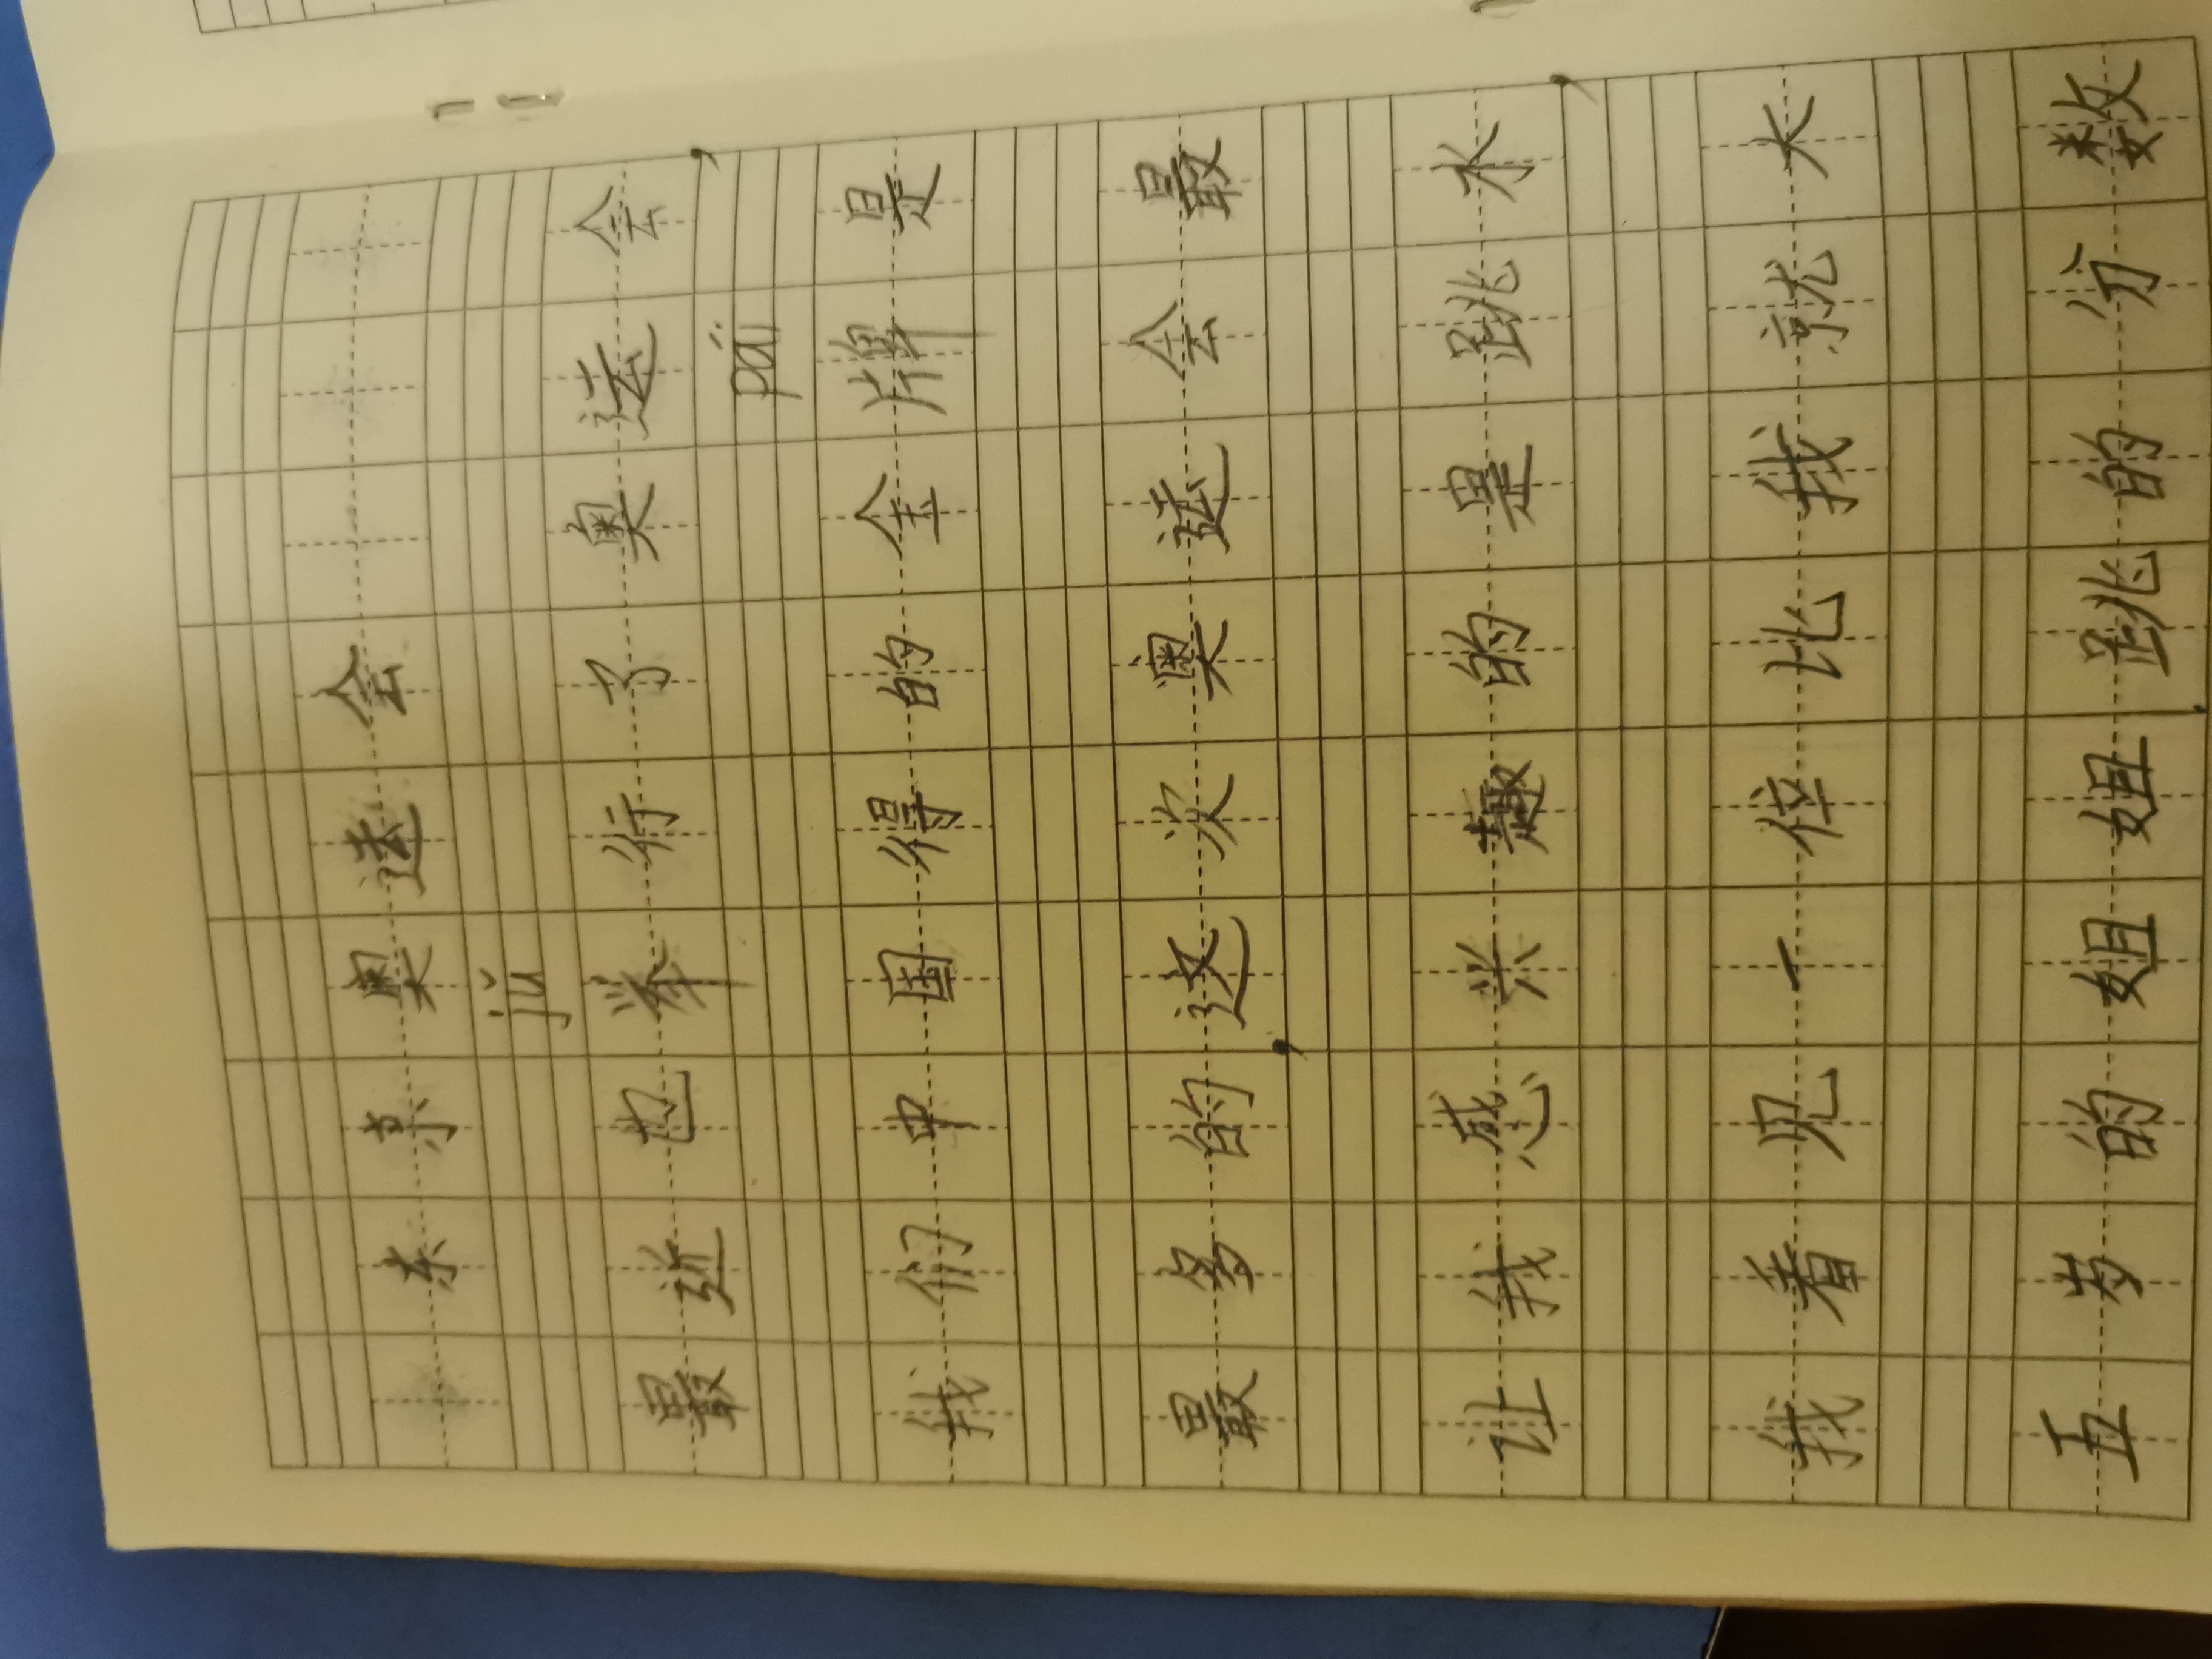 东京奥运会
jǔ
最近也举行了奥运会，
pái
我们中国得的金牌是
最多的，这次奥运会最
让我感兴趣的是跳水，
我看见一位比我就大
五岁的姐姐.跳的分数